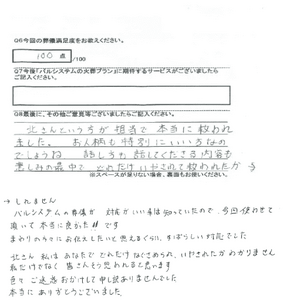 Q6今回の葬儀満足度をお教えください。
100 点 /100
Q7今後「パルシステムの火葬プラン」に期待するサービスがございましたら
ご記入ください。
Q8最後に、その他ご意見等ございましたらご記入ください。
北さんという方が担当で本当に救われ
ました。お人柄も特別にいい方なの
でしょうね 話し方、話してくださる内容も
悲しみの最中で どれだけいやされて救われたか →
※スペースが足りない場合、裏面もお使いください。
→ しれません
パルシステムの葬儀が 対応がいい事は知っていたので、今回使わせて
頂いて 本当に良かった!! です
まわりの方々にお伝えしたいと思えるぐらい、すばらしい対応でした
北さん 私はあなたで どれだけなぐさめられ、いやされたかわかりません
私だけでなく 皆さんそう思われると思います
色々ご迷惑おかけして申し訳ありませんでした
本当に ありがとうございました